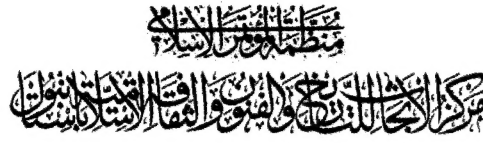 منظمة المؤتمر الاسلامي
مركز الابحاث للتاريخ والفنون والثقافة الاسلامية باستانبول